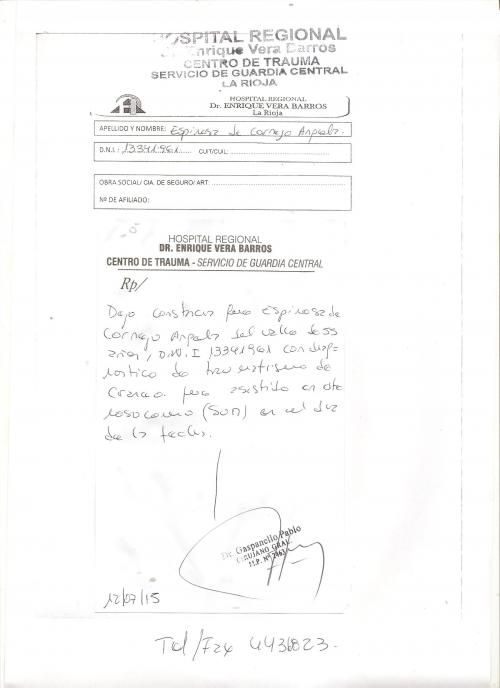 HOSPITAL REGIONAL
Dr. Enrique Vera Barros
CENTRO DE TRAUMA
SERVICIO DE GUARDIA CENTRAL
LA RIOJA
HOSPITAL REGIONAL
Dr. ENRIQUE VERA BARROS
La Rioja
APELLIDO Y NOMBRE: Espinosa de Cornejo
D.N.I.: 13341961 CUIT/CUIL:
OBRA SOCIAL/ CIA. DE SEGURO/ ART:
Nº DE AFILIADO:
HOSPITAL REGIONAL
DR. ENRIQUE VERA BARROS
CENTRO DE TRAUMA - SERVICIO DE GUARDIA CENTRAL
Rp/
Dejo constancia Espinosa de
Cornejo del valle de 55
años, D.N.I 13341961 con diag-
nostico de traumatismo de
Craneo. asistido en este
nosocomio en el dia
de la fecha.
Dr. Gaspanello Pablo
CIRUJANO GRAL.
M.P. Nº
12/07/15
Tel/Fax 4436823-